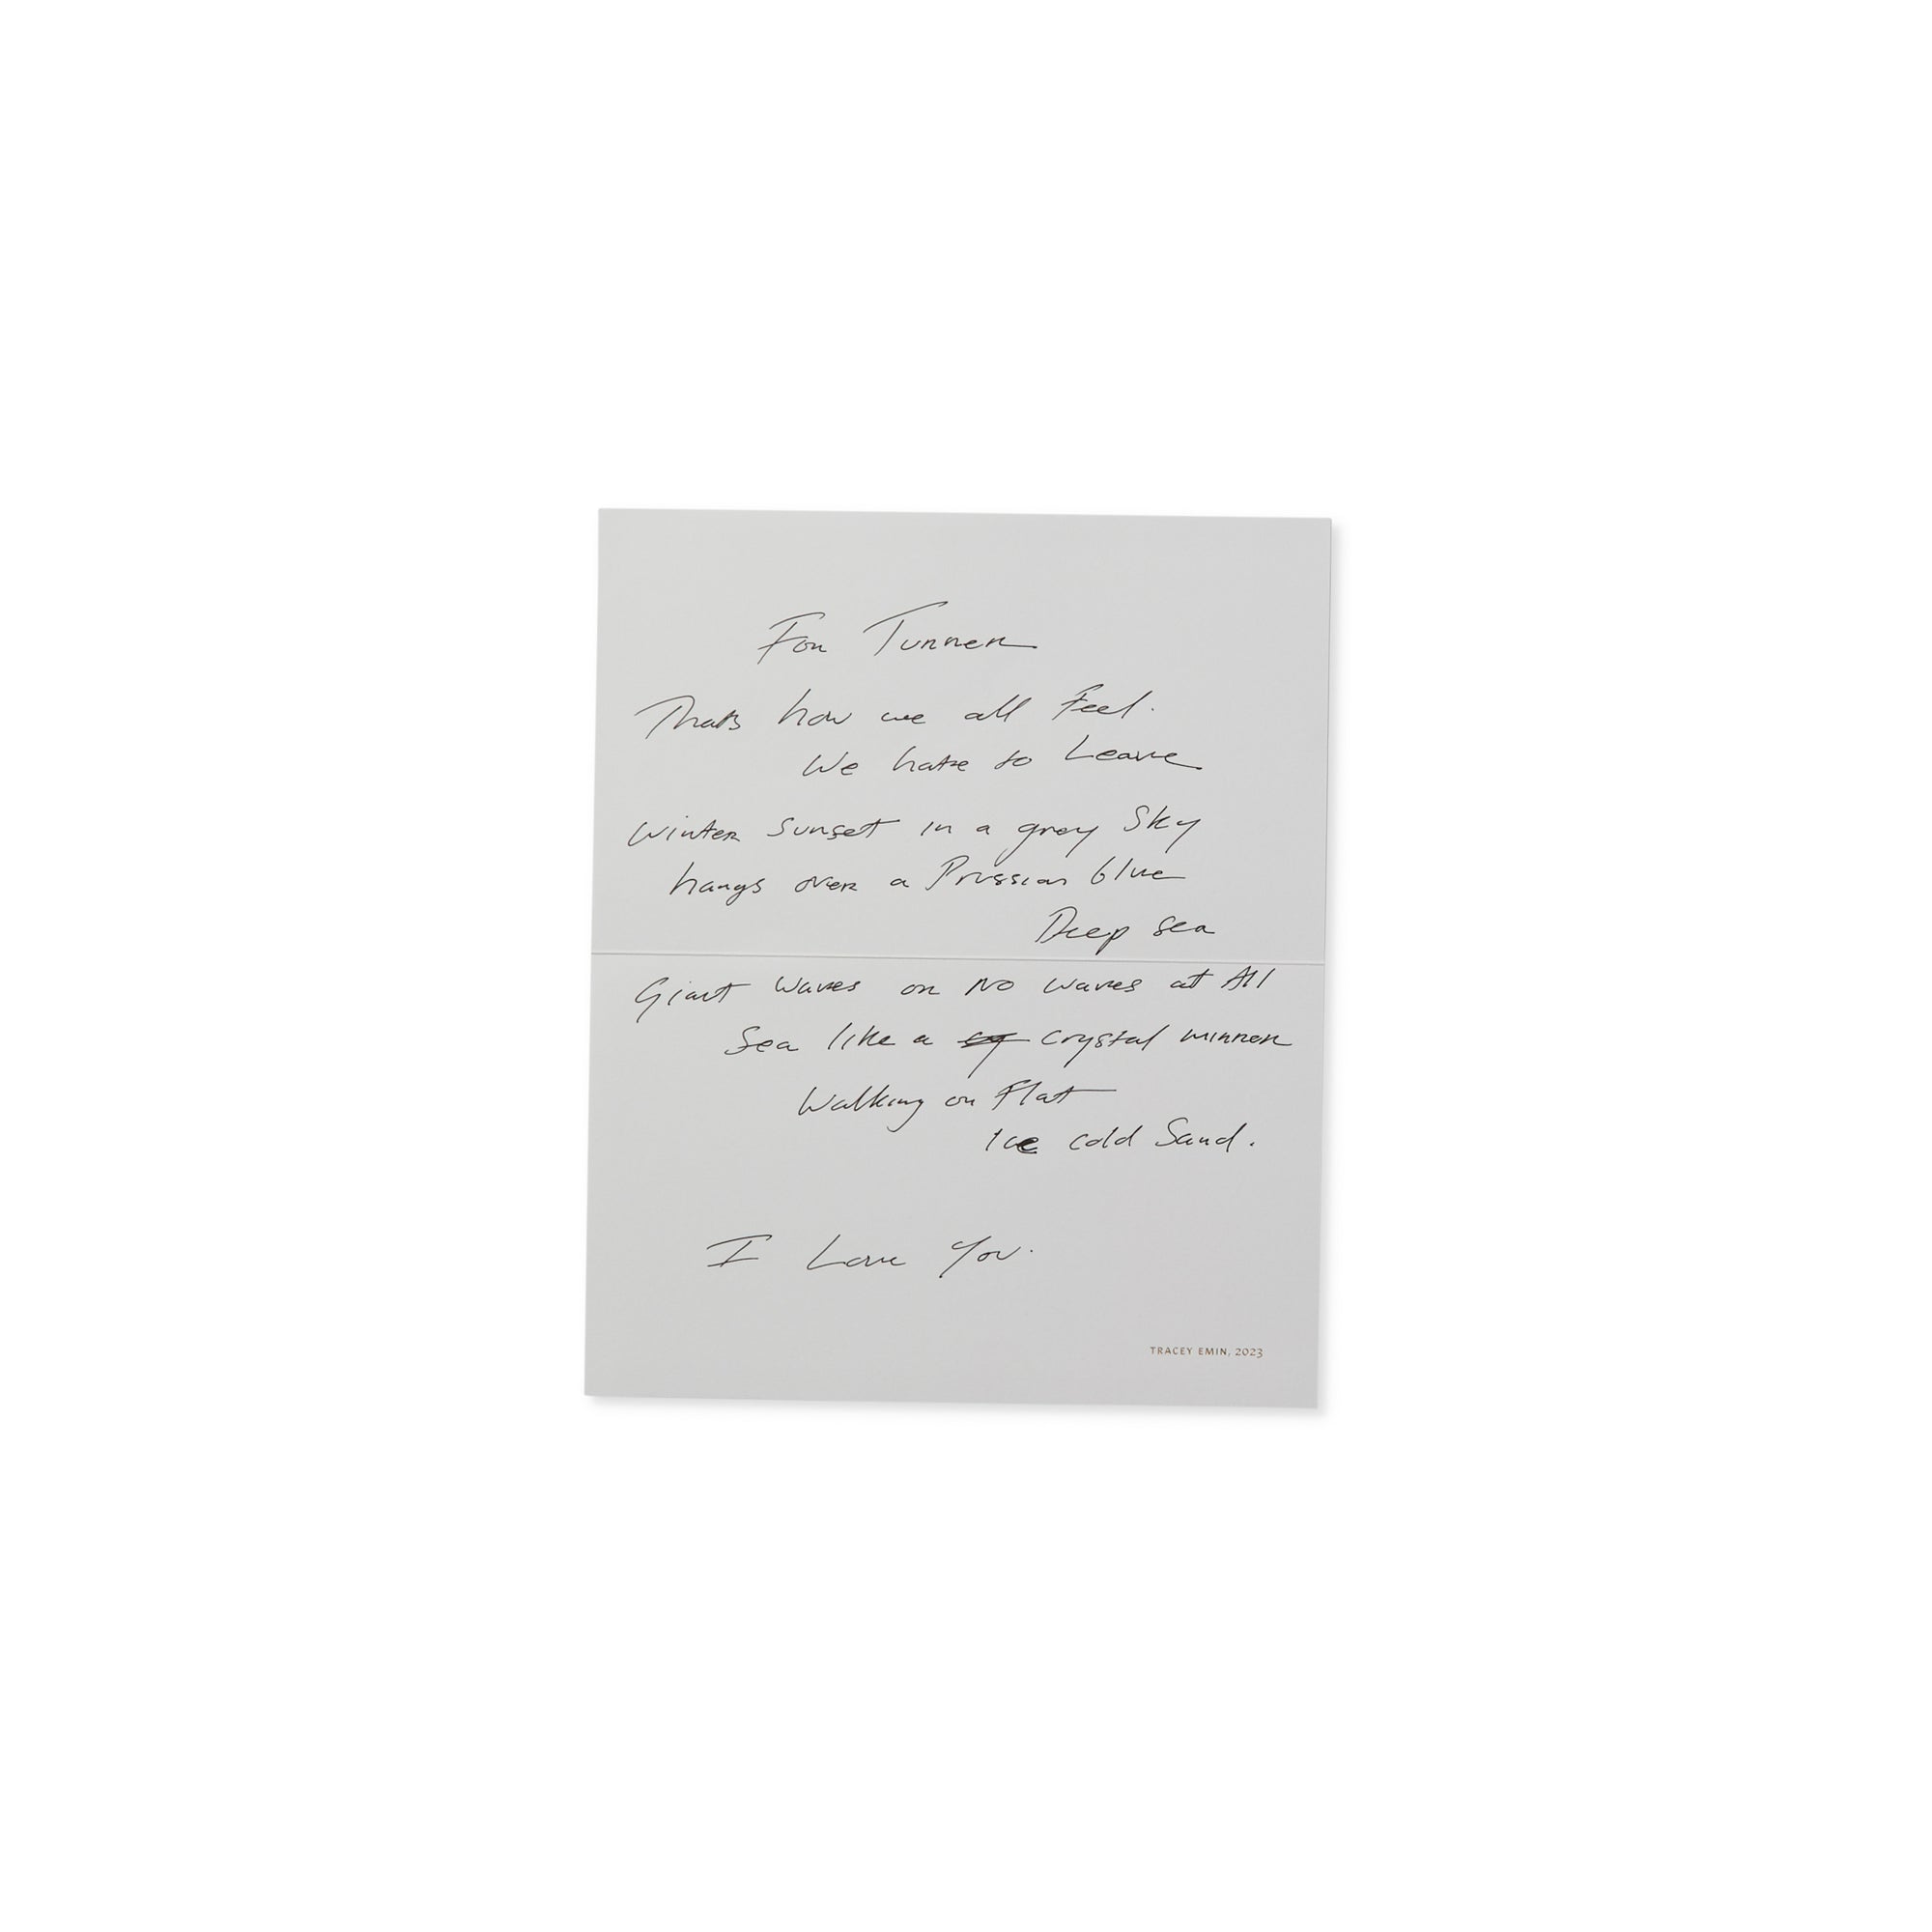 For Turner
Thats how we all Feel.
We hate to Leave
Winter Sunset in a grey Sky
hangs over a Prussian blue
Deep sea
Giant waves or No waves at All
Sea like a crystal mirror
Walking on Flat
Ice cold Sand.
I Love You.
TRACEY EMIN, 2023